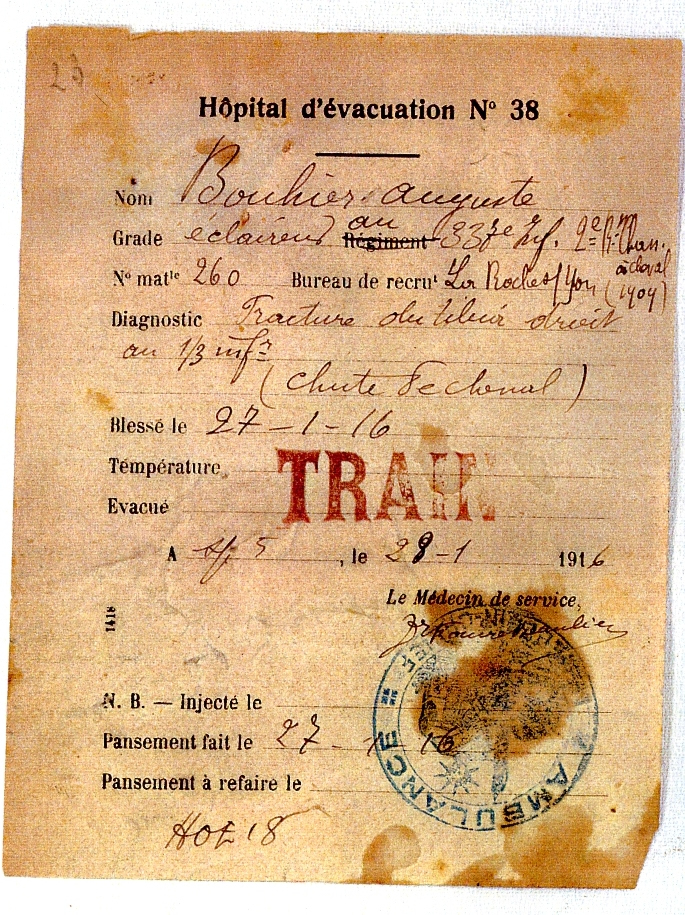 23
Hôpital d'évacuation Nº 38
Nom Bouhier Auguste
Grade éclaireur au Régiment 337e Inf. 2e R. Chass.
à cheval
Nº matle 260 Bureau de recrut La Roche s/Yon (1909)
Diagnostic Fracture du tibia droit
au 1/3 infr
(chute de cheval)
Blessé le 27-1-16
Température
TRAIN
Evacué
A 5, le 28-1 1916
Le Médecin de service,
1418
N. B. — Injecté le
Pansement fait le 27-1-16
Pansement à refaire le
AMBULANCE
HOE 18